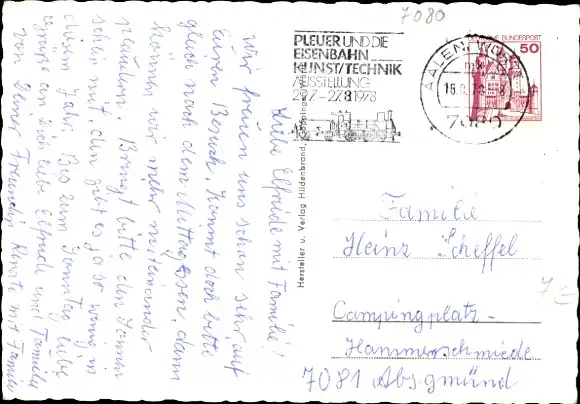 7080
PLEUER UND DIE
EISENBAHN
KUNST/TECHNIK
AUSSTELLUNG
29.7.-27.8.1978
AALEN, WÜRTT
16.8.78
7080
DEUTSCHE BUNDESPOST
50
Liebe Elfriede mit Familie!
Wir freuen uns schon sehr, auf
Euren Besuch, kommt doch bitte
gleich nach dem Mittagessen, dann
können wir mehr miteinander
plaudern. Bringt bitte den Sonnen
schein mit den gibt es ja so wenig in
diesem Jahr. Bis zum Sonntag liebe
Grüße an Dich liebe Elfriede und Familie
von Deiner Freundin mit Familie
Hersteller u. Verlag Hildenbrand, Göppingen
Familie
Heinz Scheffel
Campingplatz-
Hammerschmiede
7081 Absgmünd
7€